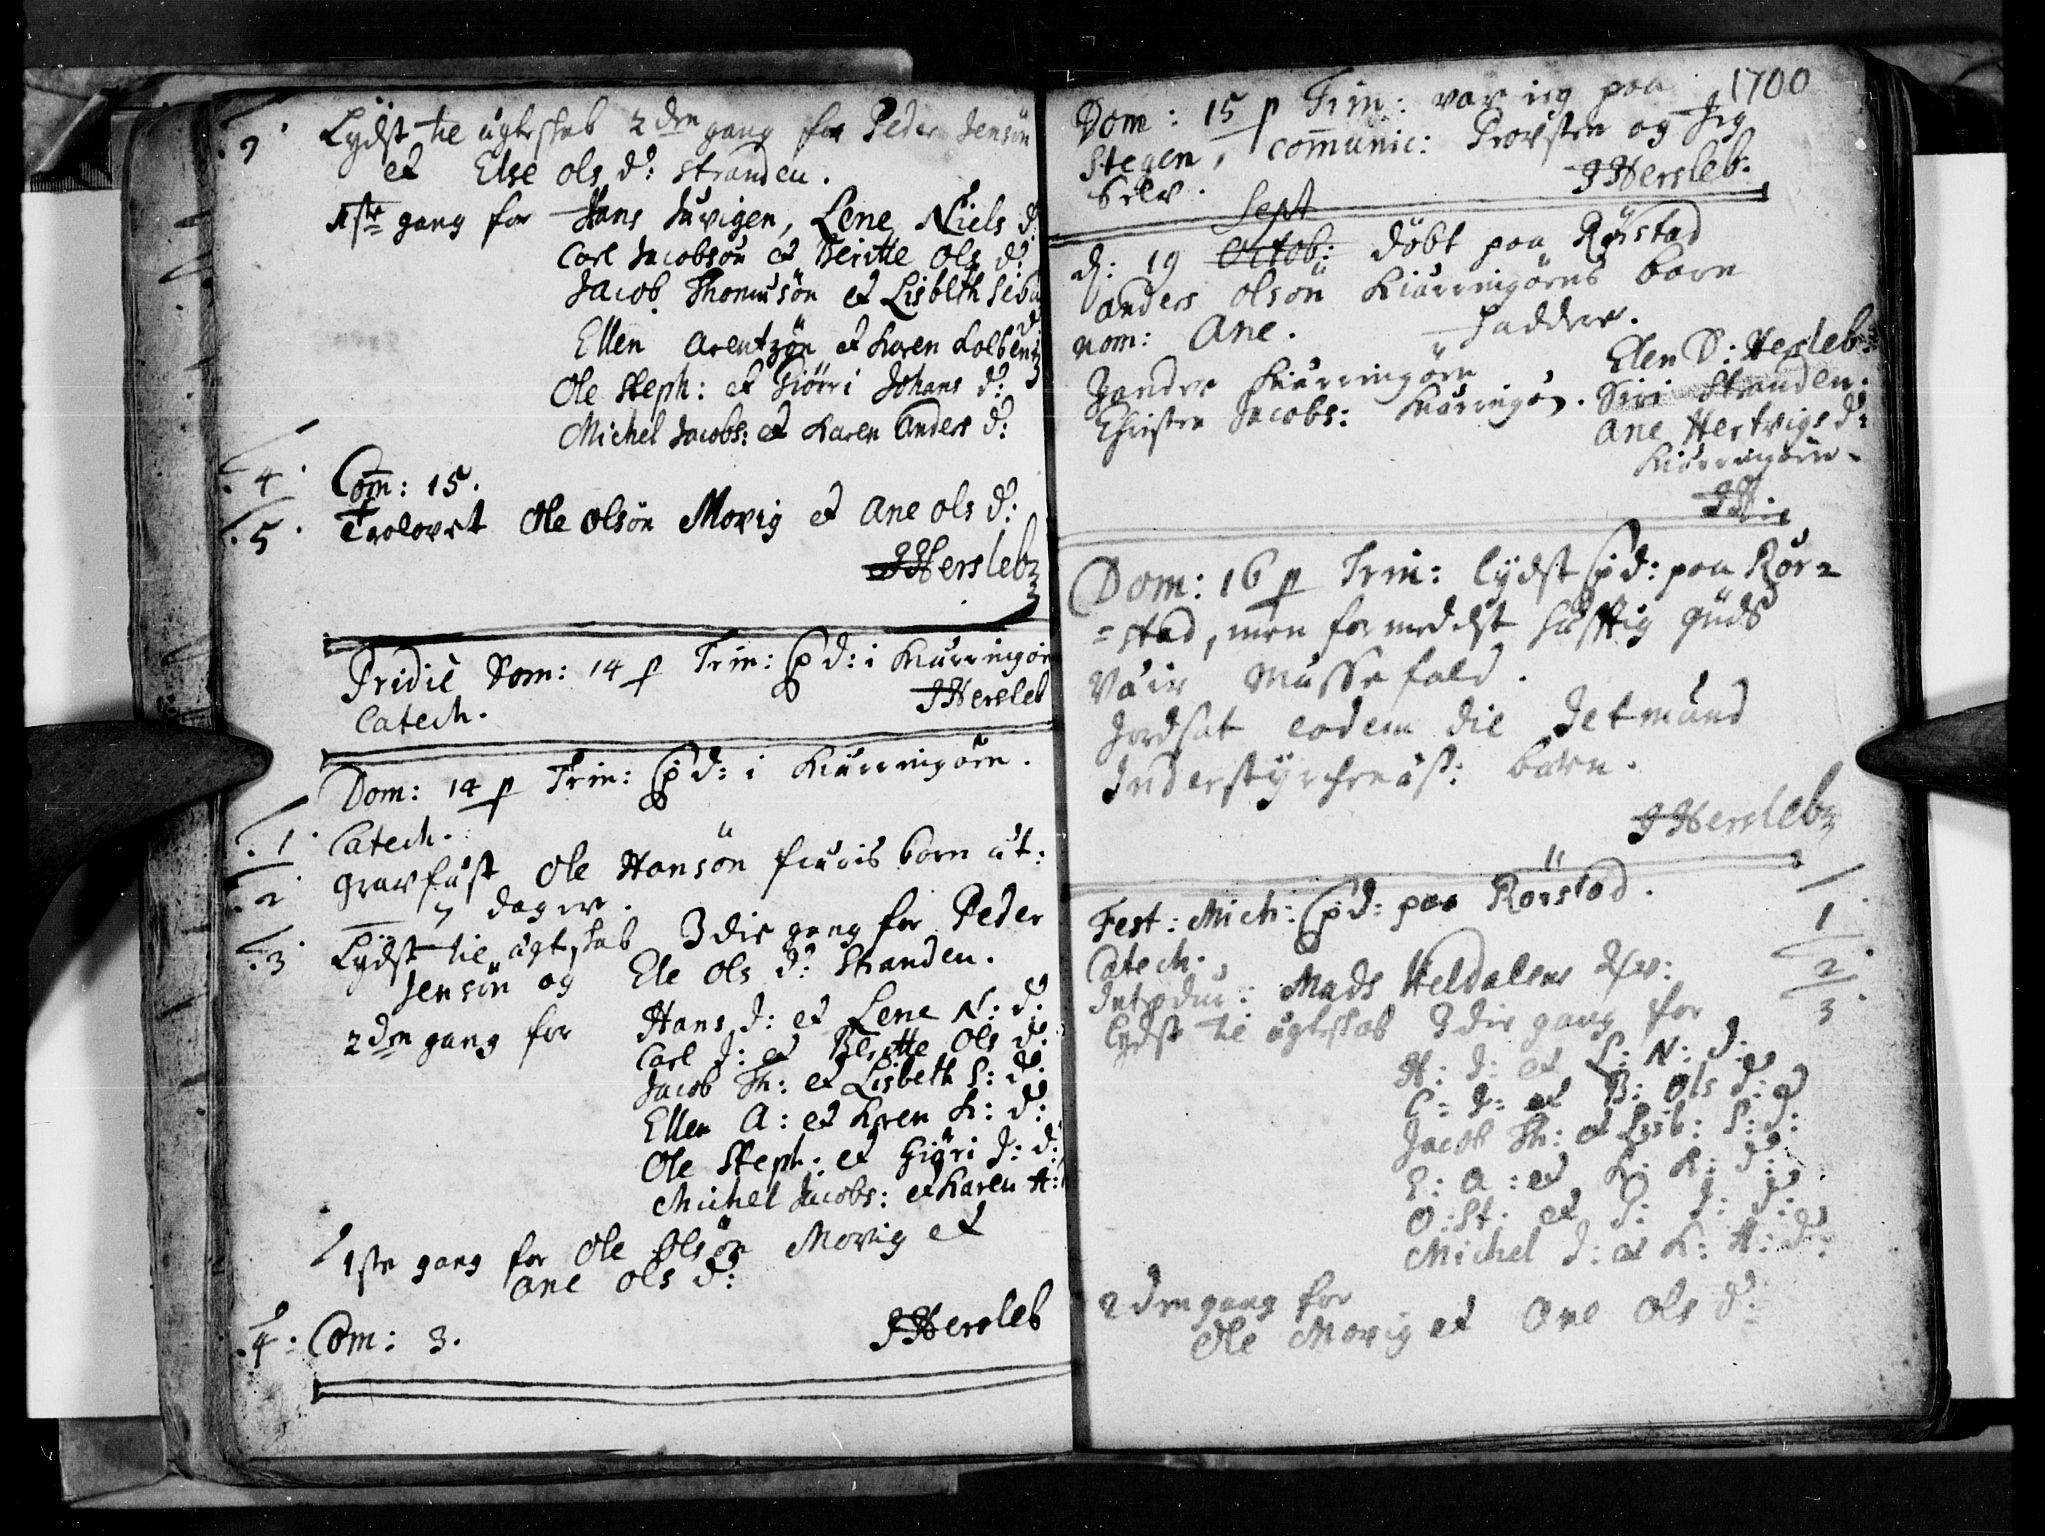 Lydst til ægteskab 2den gang for Peder Jensøn
et Else Ols d: Stranden.
1ste gang for Hans Juvigen, Lene Niels d:
Carl Jacobsøn et Beritte Ols d:
Jacob Thomesøn et Lisbeth
Ellen Arentzøn et Karen Kolbens
d:
Ole Steph: et Giørri Johans d:
Michel Jacobs: et Karen Anders d:
.4. Com: 15.
.5. Trolovet Ole Olsøn Morvig et Ane Ols d:
JHersleb
Pridie Dom: 14 p Trin: Pd: i Kiærringøe
Catech. JHersleb
Dom: 14 p Trin: Pd: i Kiærringøen.
.1. Catech.
.2. Gravfæst Ole Hansøn barn æt:
7 dager.
.3. Lydst til ægteskab 3die gang for Peder
Jensøn og Ele Ols d: Stranden.
2den gang for Hans J: et Lene N: d:
Carl J: et Beritte Ols d:
Jacob Th: et Lisbeth S: d:
Ellen A: et Karen K: d:
Ole Steph: et Giøri J: d:
Michel Jacobs: et Karen A:
1ste gang for Ole Olsøn Morvig et
Ane Ols d:
.4. Com: 3. JHersleb
1700
Dom: 15 p Trin: var ieg paa
Stegen, communic: Provsten og Jeg
selv. JHersleb.
Sept
d: 19 Octob: døbt paa Rørstad
Anders Olsøn Kiærringøens barn
nom: Ane. Faddere.
Elen D: Hersleb:
Zander Kiærringøen Siri Stranden.
Christen Jacobs: Kiæringø. Ane Hertvigs d:
Kiærringøen.
JH.
Dom: 16 p Trin: lydst Pd: paa Rør=
=stad, men formedelst hæfftig Guds
Væir Messefald.
Jordsat eodem die Jetmund
Inderstyrchenæs: barn.
JHersleb
Fest: Mich: Pd: paa Rørstad.
Catech. 1.
Introdu: Mads Heldalens 2.
Lydst til ægteskab 3die gang for 3.
H: J: et L: N: d:
C: J: et B: Ols d:
Jacob Th: et Lisb: S: d:
E: A: et K: K: d:
O: St: et J: d:
Michel J: et K: A: d:
2den gang for
Ole Morvig et Ane Ols d: